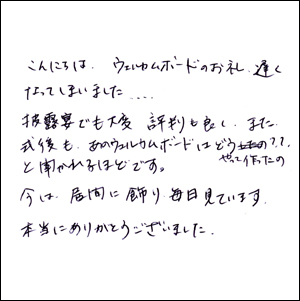 こんにちは、ウェルカムボードのお礼、遅く
なってしまいました....
披露宴でも大変 評判も良く、また
式後も、あのウェルカムボードはどうやって作ったの??
と聞かれるほどです。
今は、居間に飾り、毎日見ています。
本当にありがとうございました。